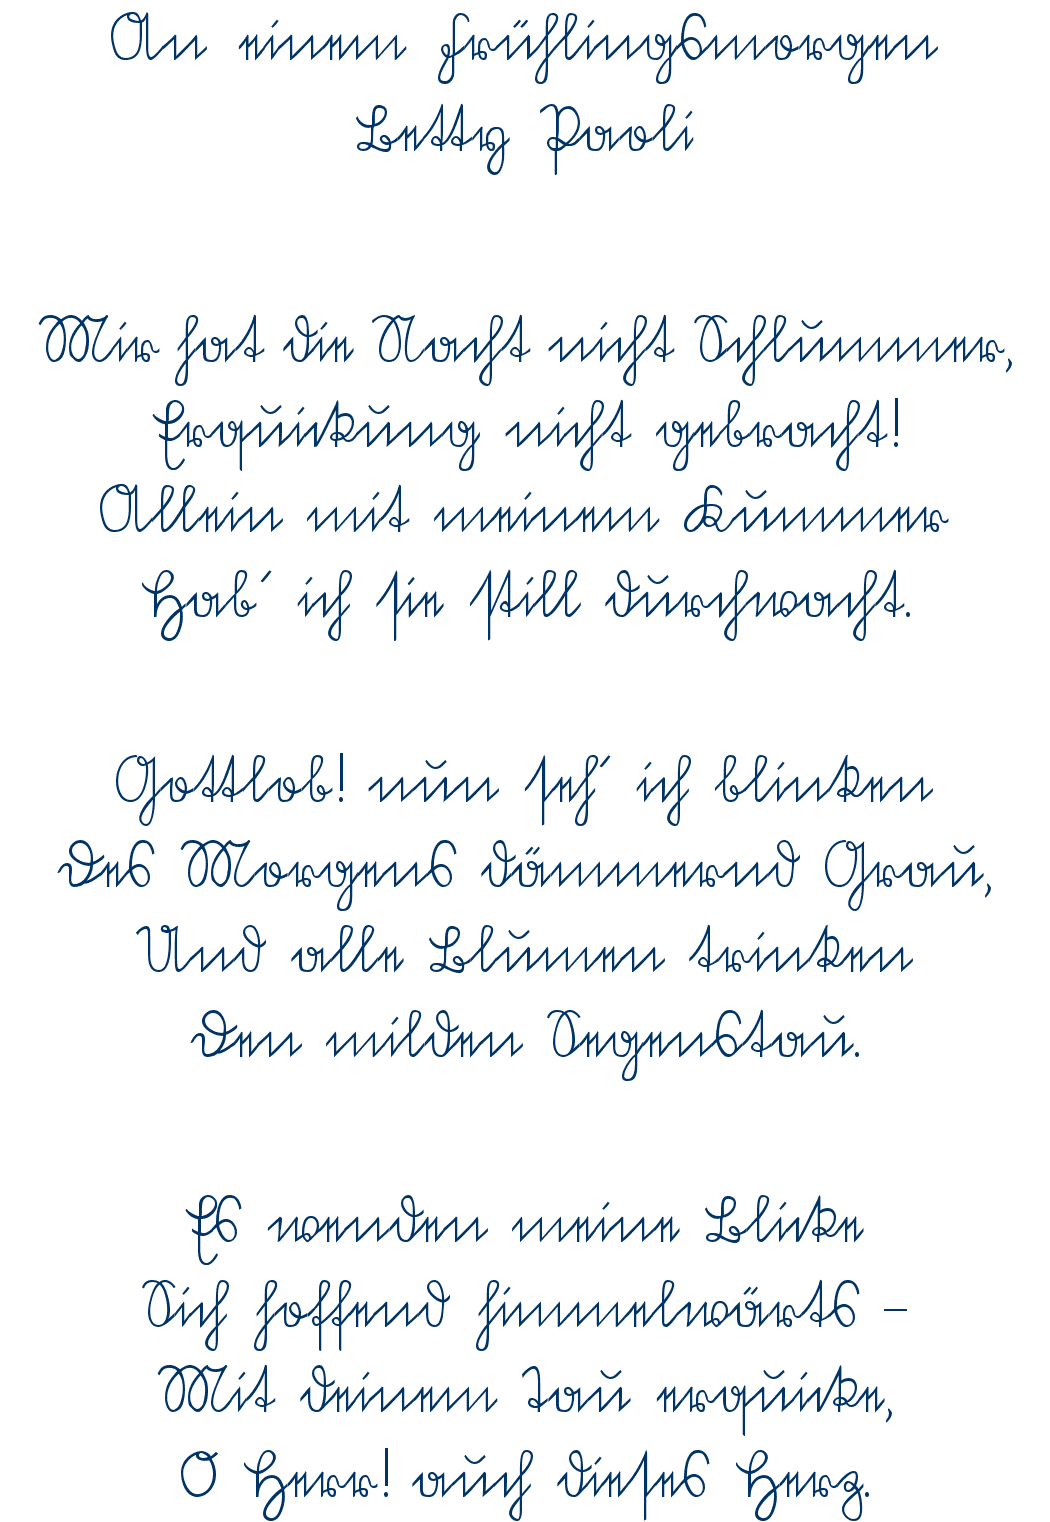 An einem Frühlingsmorgen
Betty Paoli
Mir hat die Nacht nicht Schlummer,
Erquickung nicht gebracht!
Allein mit meinem Kummer
Hab´ ich sie still durchwacht.
Gottlob! nun seh´ ich blinken
Des Morgens dämmernd Grau,
Und alle Blumen trinken
Den milden Segenstau.
Es wenden meine Blicke
Sich hoffend himmelwärts –
Mit deinem Tau erquicke,
O Herr! auch dieses Herz.